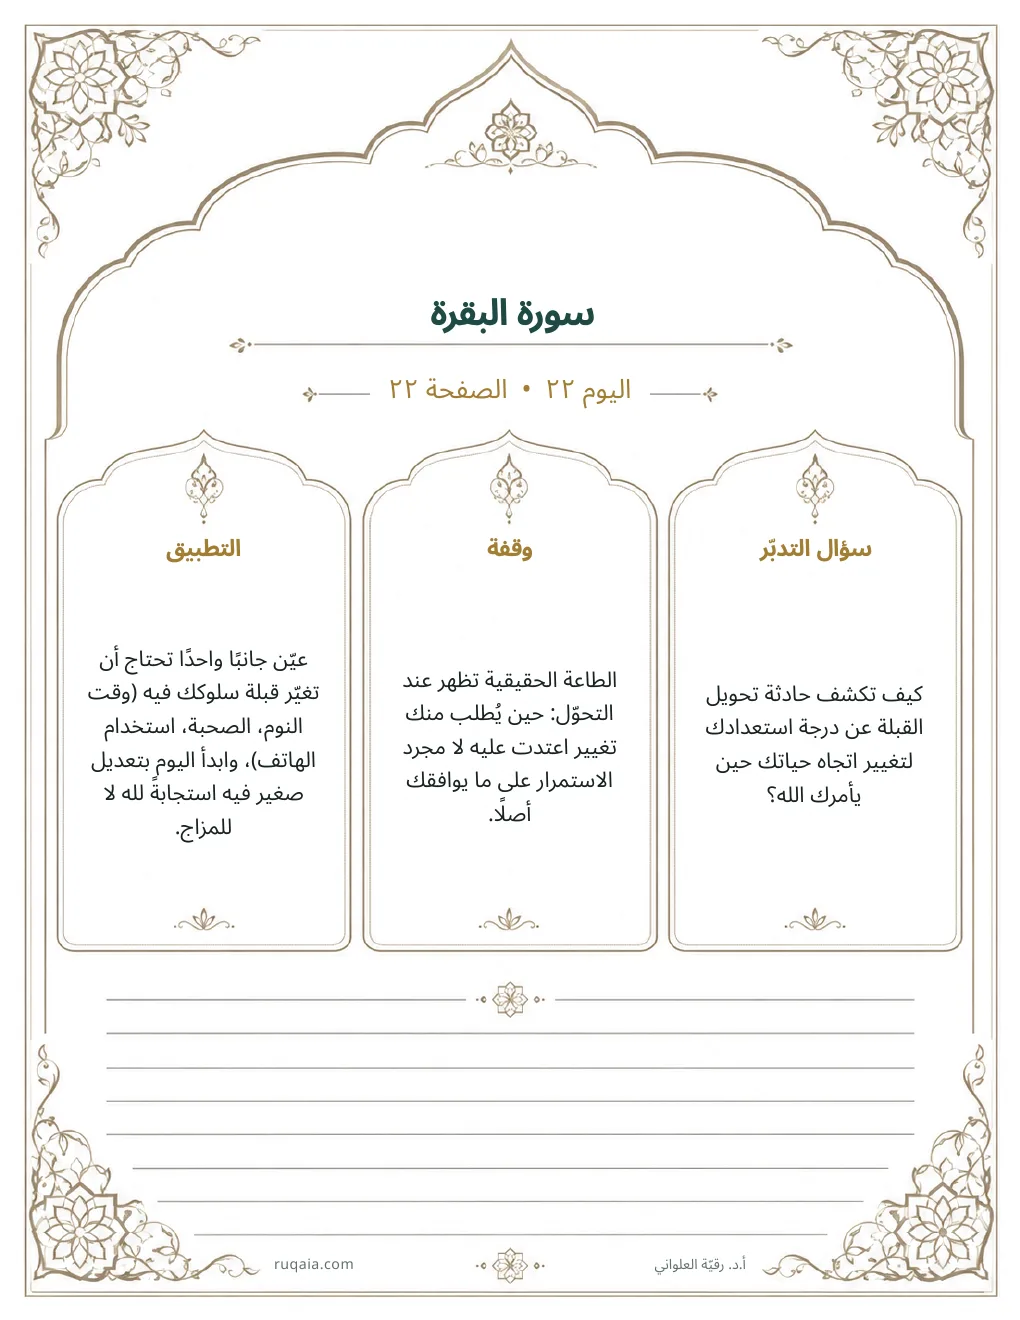 سورة البقرة
اليوم ٢٢ • الصفحة ٢٢
سؤال التدبّر
كيف تكشف حادثة تحويل
القبلة عن درجة استعدادك
لتغيير اتجاه حياتك حين
يأمرك الله؟
وقفة
الطاعة الحقيقية تظهر عند
التحوّل: حين يُطلب منك
تغيير اعتدت عليه لا مجرد
الاستمرار على ما يوافقك
أصلًا.
التطبيق
عيّن جانبًا واحدًا تحتاج أن
تغيّر قبلة سلوكك فيه (وقت
النوم، الصحبة، استخدام
الهاتف)، وابدأ اليوم بتعديل
صغير فيه استجابةً لله لا
للمزاج.
أ.د. رقيّة العلواني
ruqaia.com